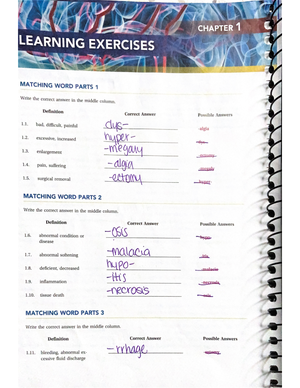 CHAPTER 1
LEARNING EXERCISES
MATCHING WORD PARTS 1
Write the correct answer in the middle column.
Definition Correct Answer Possible Answers
1.1. bad, difficult, painful dys- algia
1.2. excessive, increased hyper-
1.3. enlargement -megaly
1.4. pain, suffering -algia
1.5. surgical removal -ectomy
MATCHING WORD PARTS 2
Write the correct answer in the middle column.
Definition Correct Answer Possible Answers
1.6. abnormal condition or -osis
disease
1.7. abnormal softening -malacia
1.8. deficient, decreased hypo-
1.9. inflammation -itis
1.10. tissue death -necrosis
MATCHING WORD PARTS 3
Write the correct answer in the middle column.
Definition Correct Answer Possible Answers
1.11. bleeding, abnormal ex- -rrhage
cessive fluid discharge